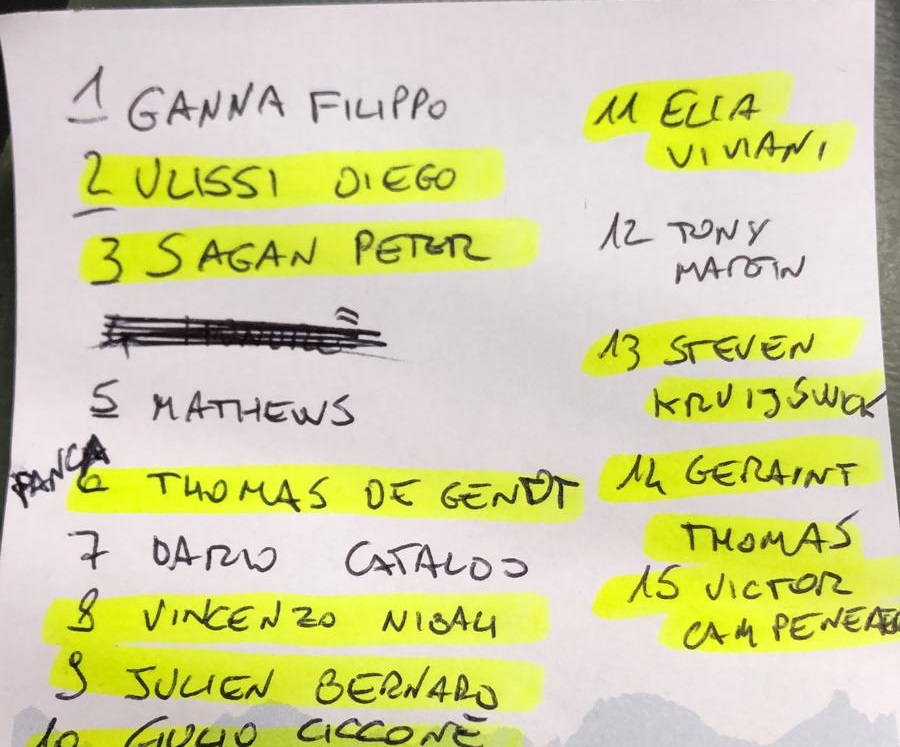 1 GANNA FILIPPO
2 ULISSI DIEGO
3 SAGAN PETER
5 MATHEWS
PANCA
6 THOMAS DE GENDT
7 DARIO CATALDO
8 VINCENZO NIBALI
9 JULIEN BERNARD
10 GIULIO CICCONE
11 ELIA
VIVIANI
12 TONY
MARTIN
13 STEVEN
KRUIJSWICK
14 GERAINT
THOMAS
15 VICTOR